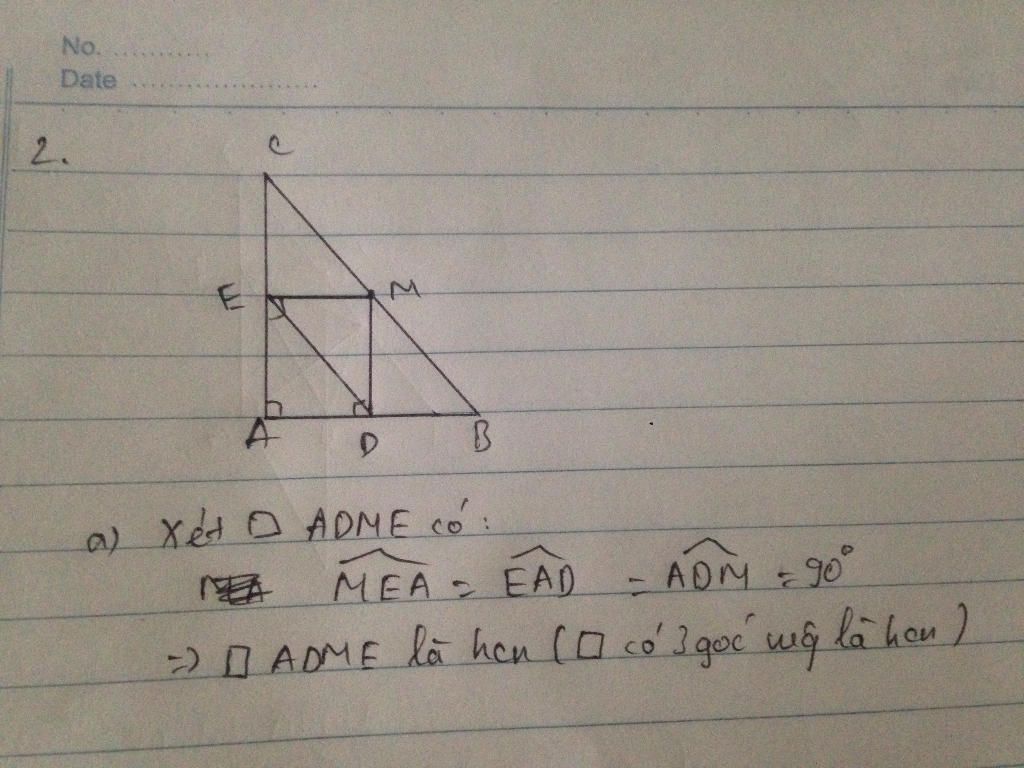 No. ............
Date .....................
2.
C
E M
A D B
a) Xét □ ADME có:
MEA = EAD = ADM = 90°
=> □ ADME là hcn (□ có 3 góc vuông là hcn)